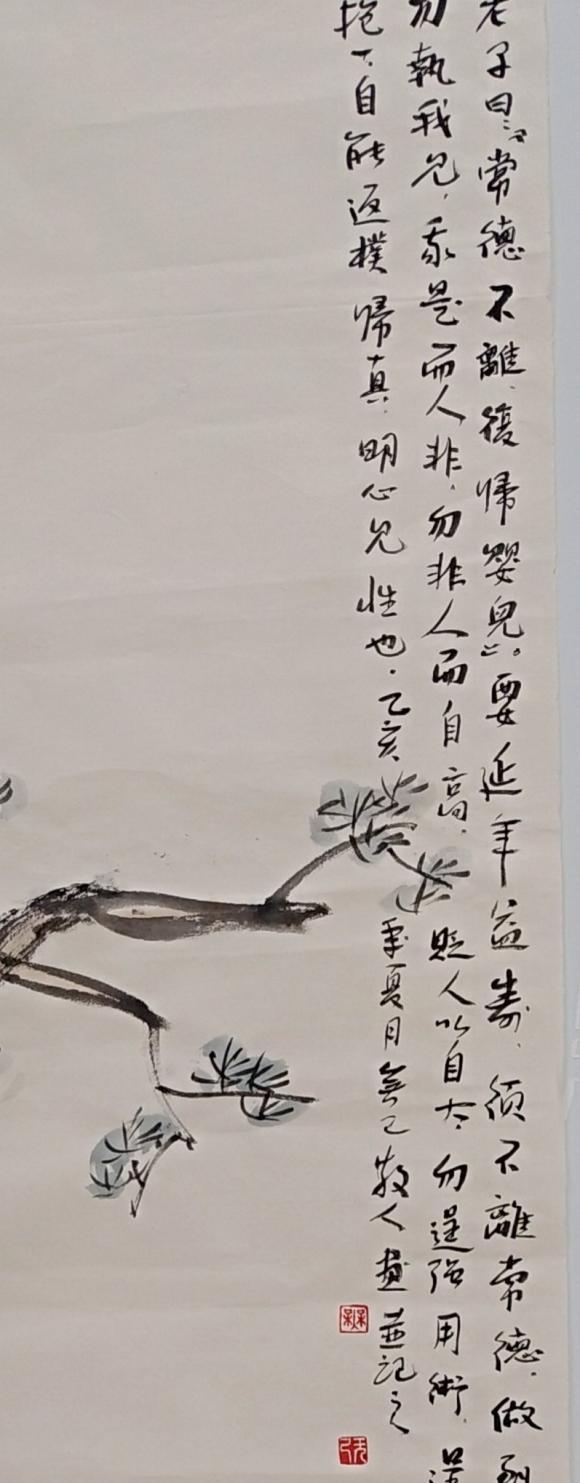 老子曰:“常德不離,復歸嬰兒”。要延年益壽,須不離常德,做到
勿執我見,我是而人非,勿非人而自高,貶人以自大,勿逞強用術,
抱一,自能返樸歸真,明心見性也。乙亥
年夏月無己散人畫並記之